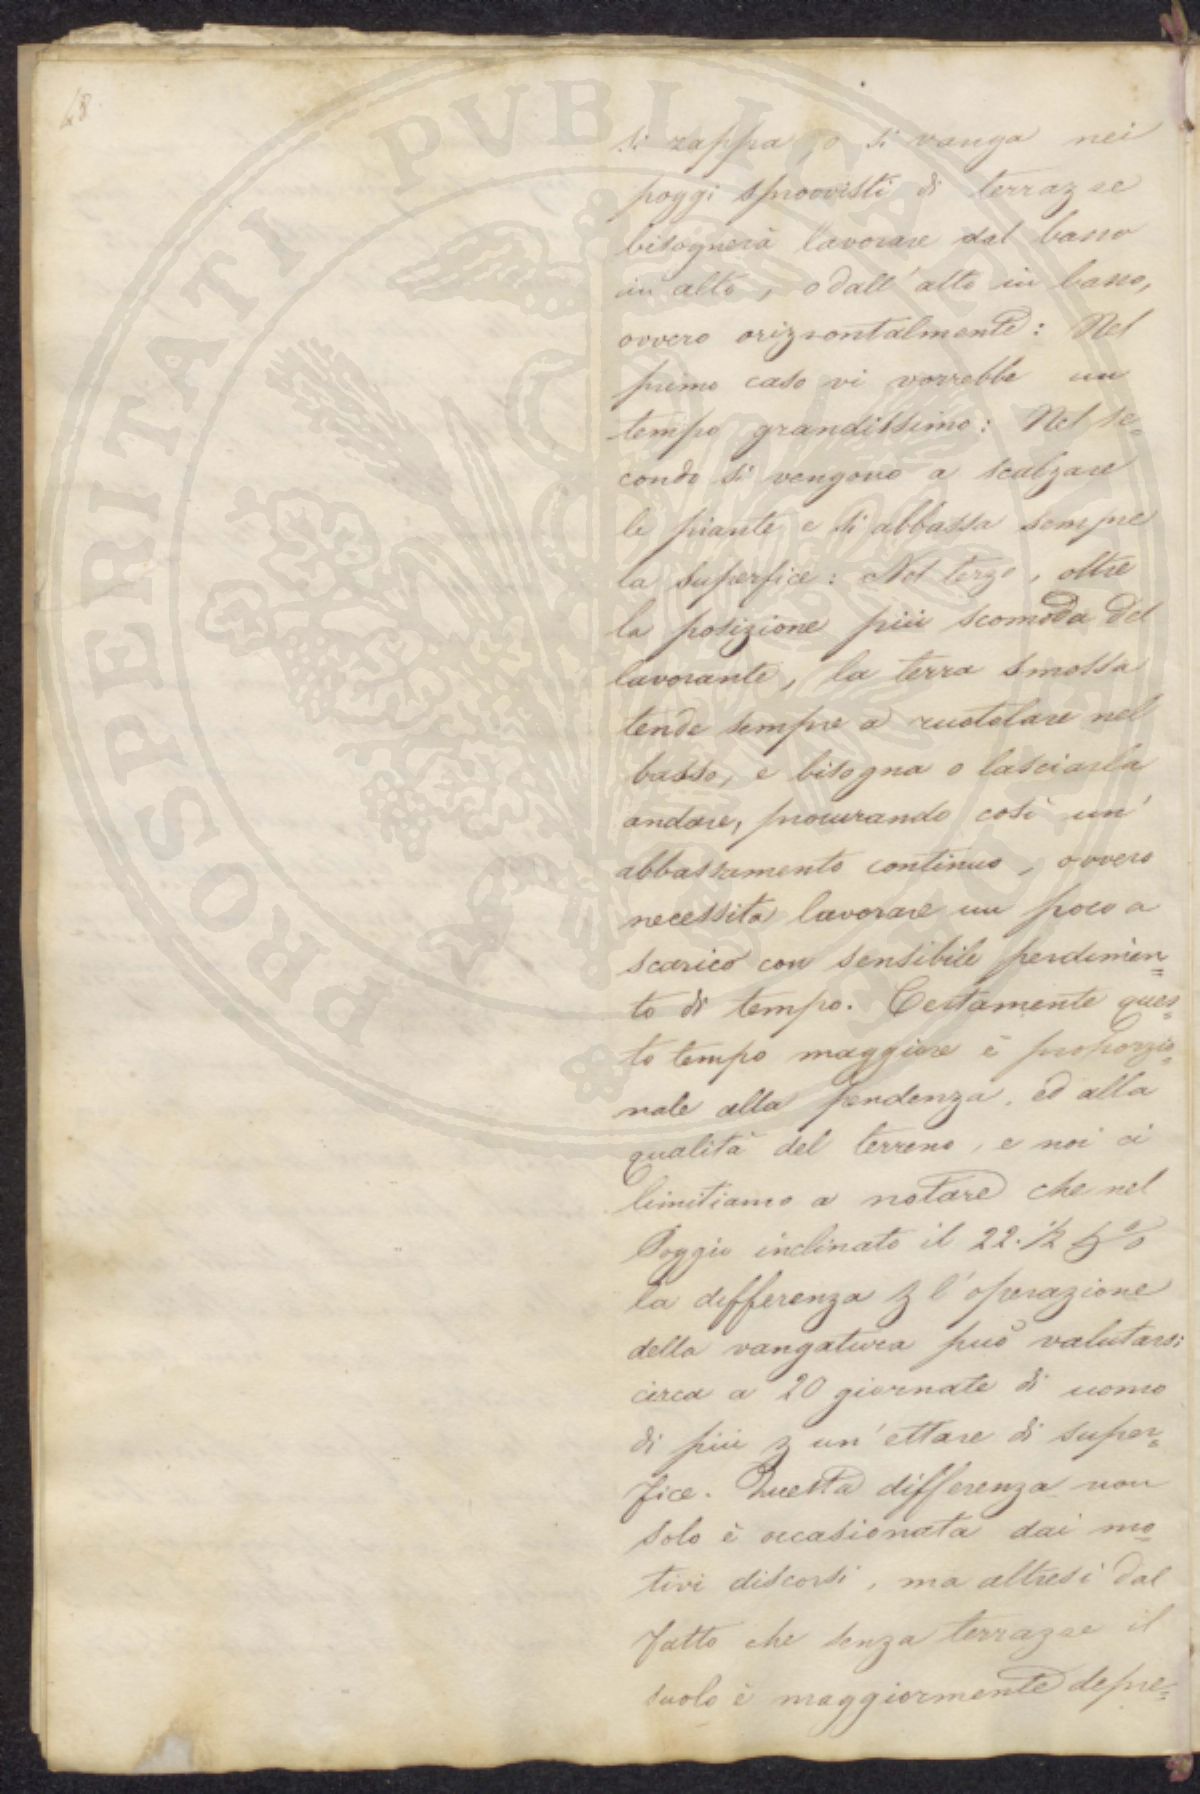 48.
PROSPERITATI PVBLICAE
si zappa, o si vanga nei
poggi sprovvisti di terrazze
bisognerà lavorare dal basso
in alto, o dall'alto in basso,
ovvero orizzontalmente: Nel
primo caso vi vorrebbe un
tempo grandissimo: Nel se=
condo si vengono a scalzare
le piante e si abbassa sempre
la superfice: Nel terzo, oltre
la posizione più scomoda del
lavorante, la terra smossa
tende sempre a ruotolare nel
basso, e bisogna o lasciarla
andare, procurando così un'
abbassamento continuo, ovvero
necessita lavorare un poco a
scarico con sensibile perdimen=
to di tempo. Certamente ques=
to tempo maggiore è proporzio=
nale alla pendenza, ed alla
qualità del terreno, e noi ci
limitiamo a notare che nel
Poggio inclinato il 22. 1/2 p %
la differenza p l'operazione
della vangatura può valutarsi
circa a 20 giornate di uomo
di più p un'ettare di super=
fice. Questa differenza non
solo è occasionata dai mo=
tivi discorsi, ma altresì dal
fatto che senza terrazze il
suolo è maggiormente depre=